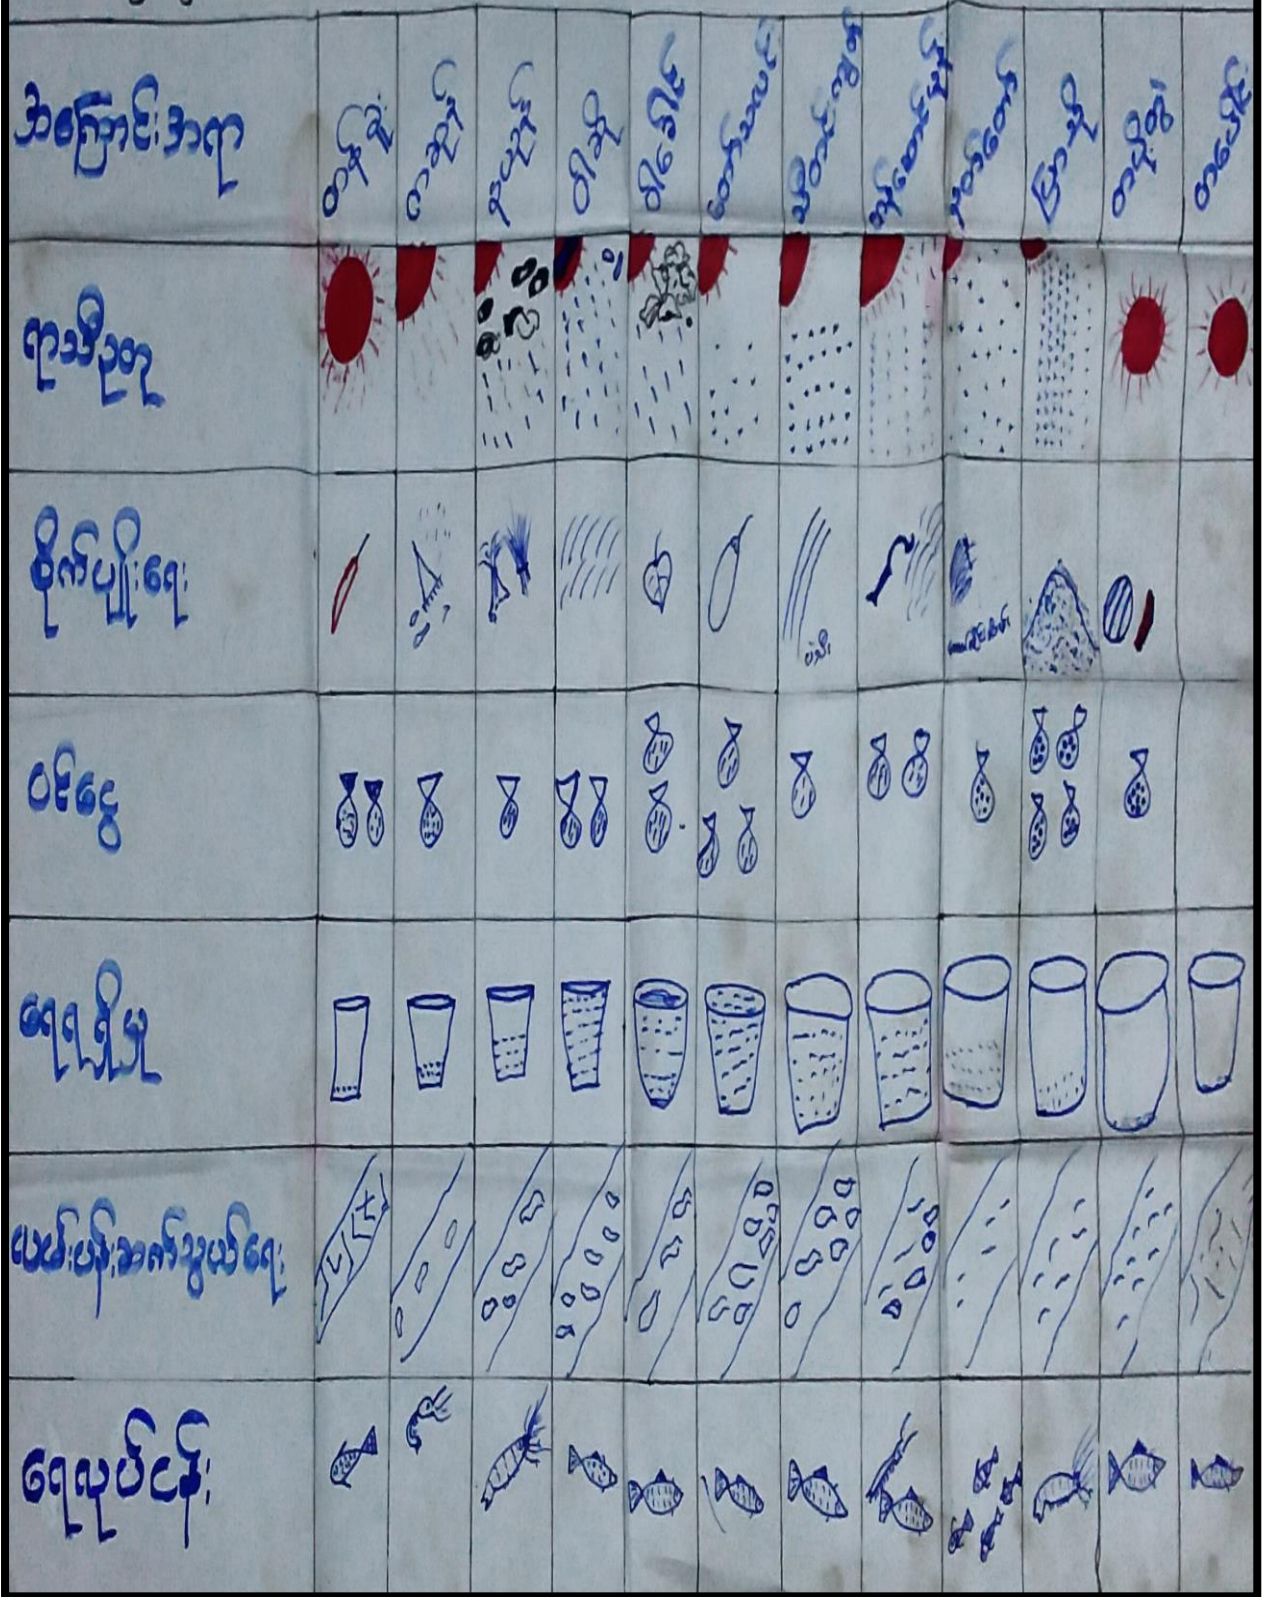 အကြောင်းအရာ
တန်ခူး
ကဆုန်
နယုန်
ဝါဆို
ဝါခေါင်
တော်သလင်း
သီတင်းကျွတ်
တန်ဆောင်မုန်း
နတ်တော်
ပြာသို
တပို့တွဲ
တပေါင်း
ရာသီဥတု
စိုက်ပျိုးရေး
ဝင်ငွေ
ရေရရှိမှု
လမ်းပန်းဆက်သွယ်ရေး
ရေလုပ်ငန်း